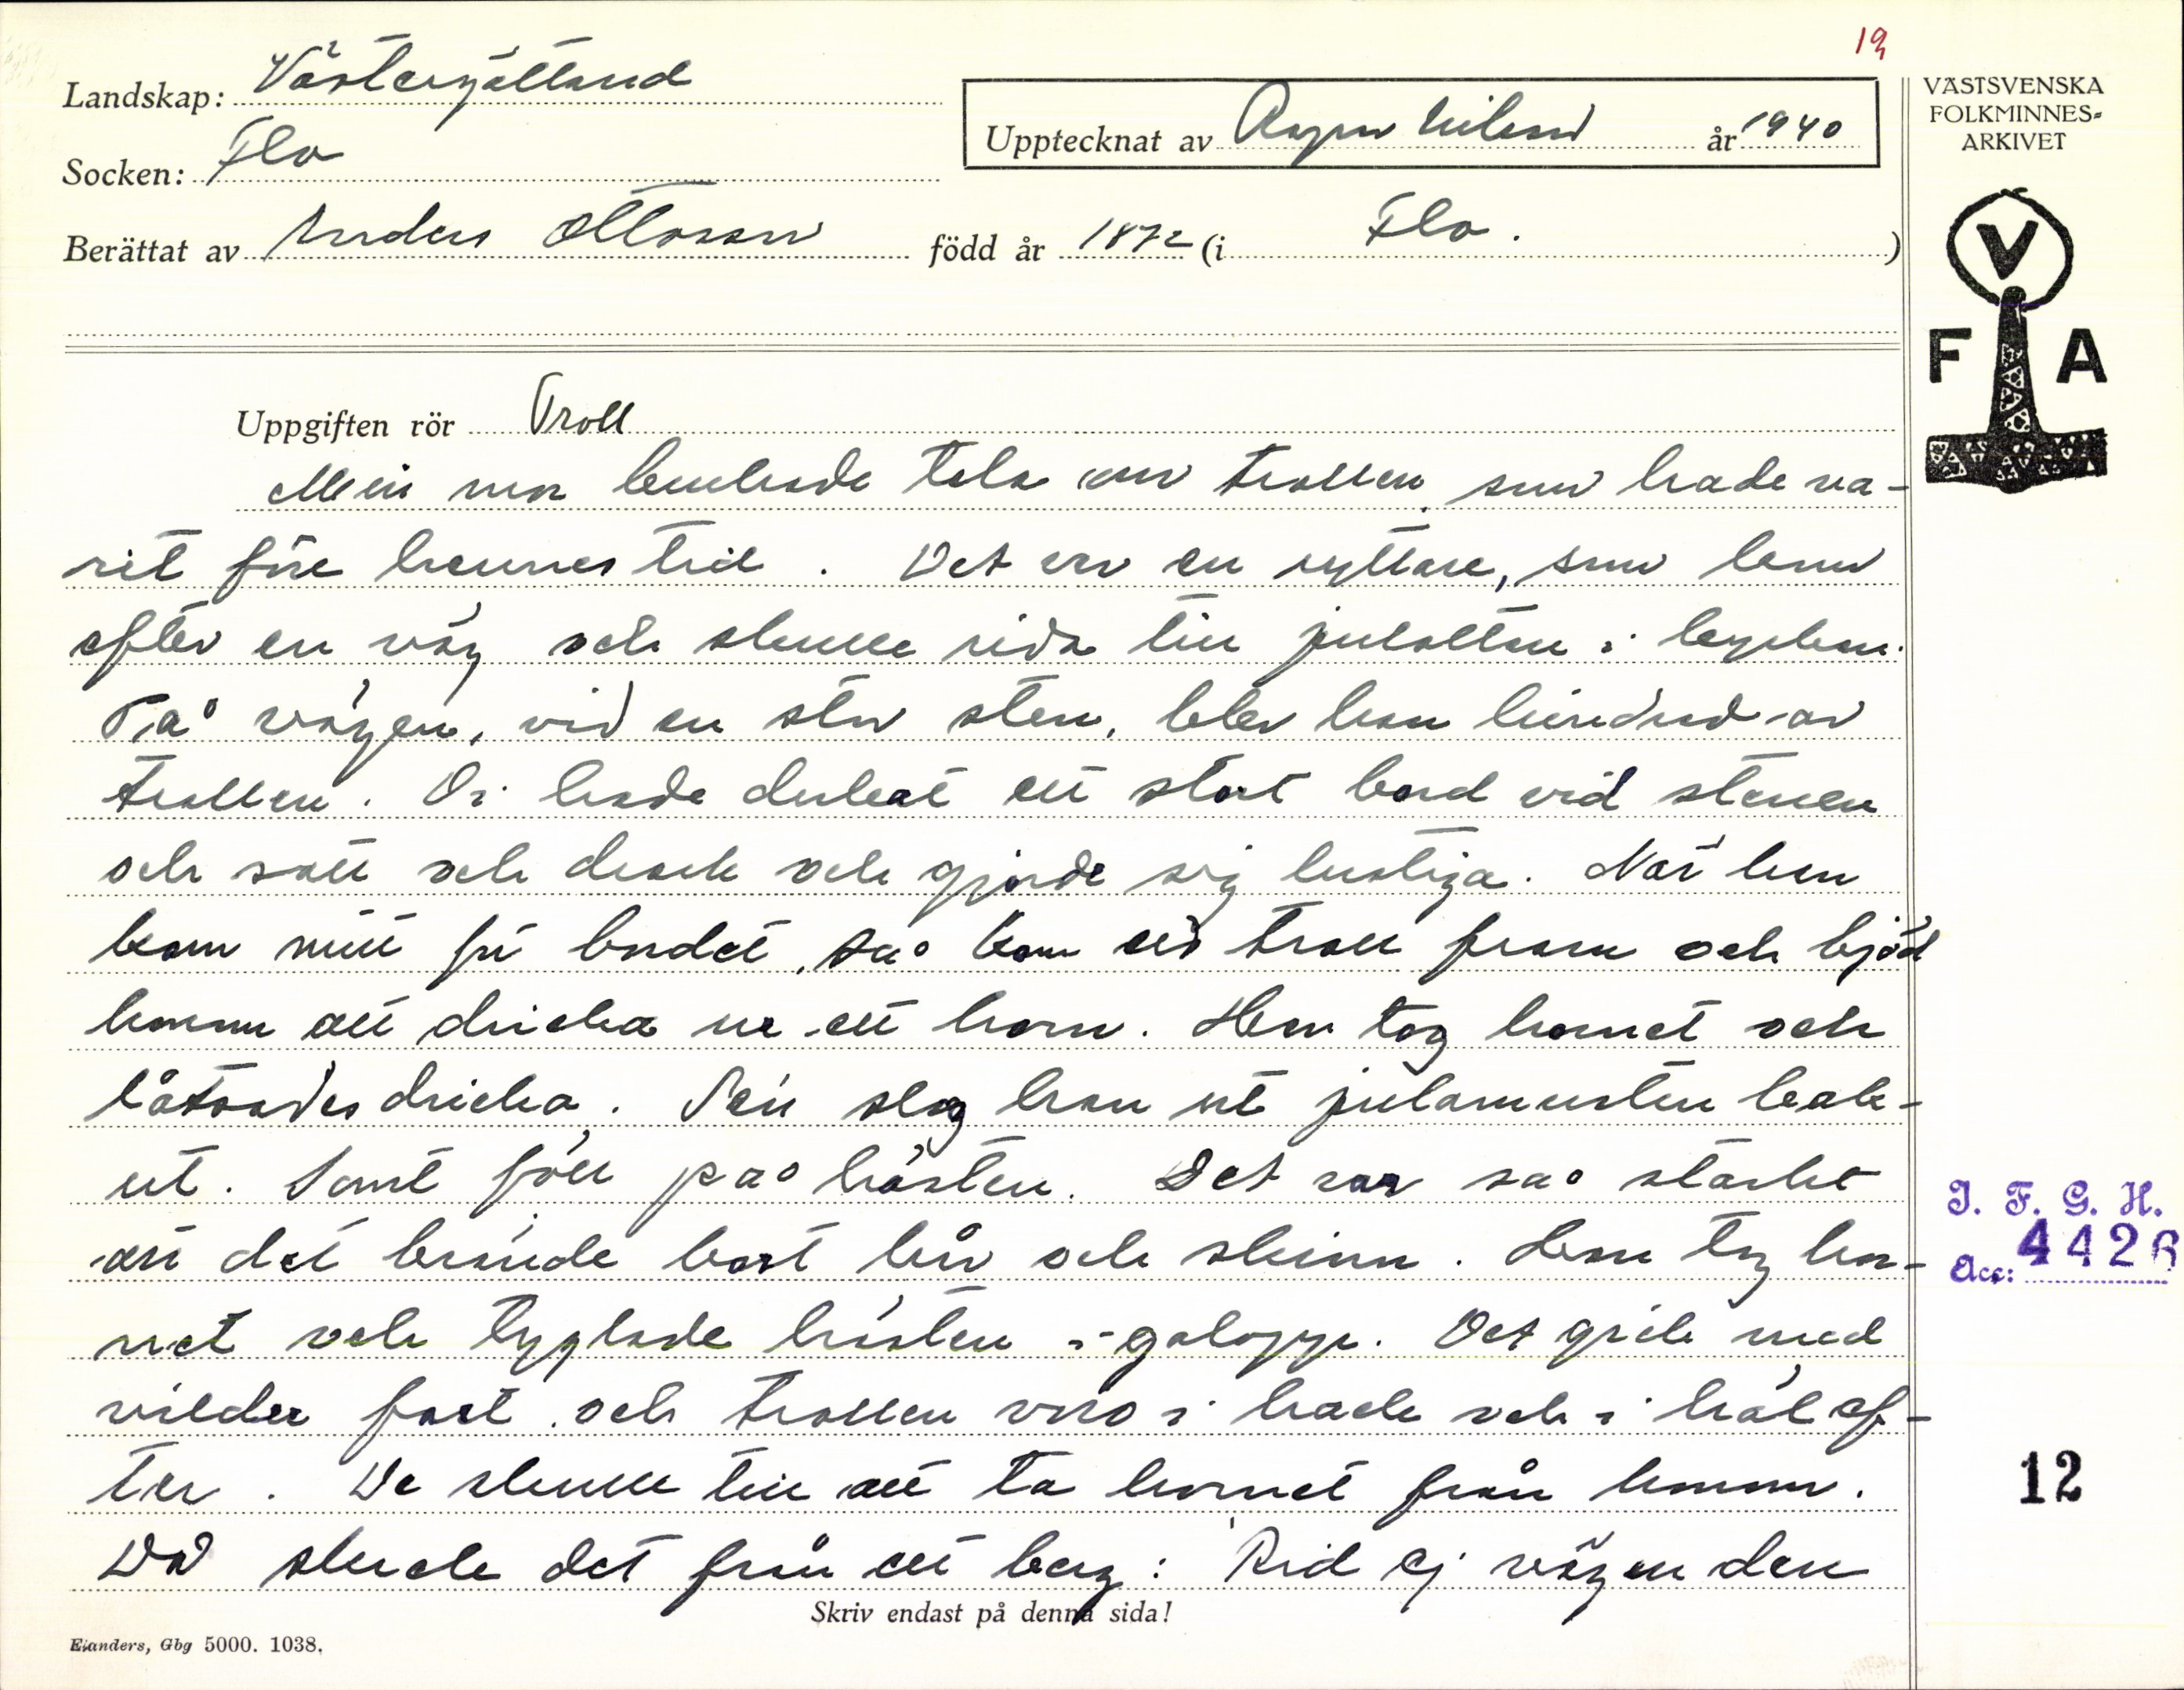 19
Landskap: Västergötland
Socken: Flo
Upptecknat av Ragnar Nilsson år 1940
Berättat av Anders Ottosson född år 1872 (i Flo.)
VÄSTSVENSKA
FOLKMINNES-
ARKIVET
V
F A
Uppgiften rör Troll
Min mor brukade tala om trollen, som hade va-
rit före hennes tid. Det var en ryttare, som kom
efter en väg och skulle rida till julottan i kyrkan.
På vägen, vid en stor sten, blev han hindrad av
trollen. Di hade dukat ett stort bord vid stenen
och satt och drack och gjorde sig lustiga. När han
kom mitt för bordet, så kom ett troll fram och bjöd
honom att dricka ur ett horn. Han tog hornet och
låtsades dricka. Sen slog han ut julamusten bak-
ut. Somt föll på hästen. Det var så starkt
att det brände bort hår och skinn. Han tog hor-
net och tyglade hästen i galopp. Det gick med
vilder fart och trollen voro i hack och i häl ef-
ter. De skulle till att ta hornet från honom.
Då skrek det från ett berg: Rid ej vägen den
Skriv endast på denna sida!
Elanders, Gbg 5000. 1038.
I. F. G. H.
Acc: 4426
12